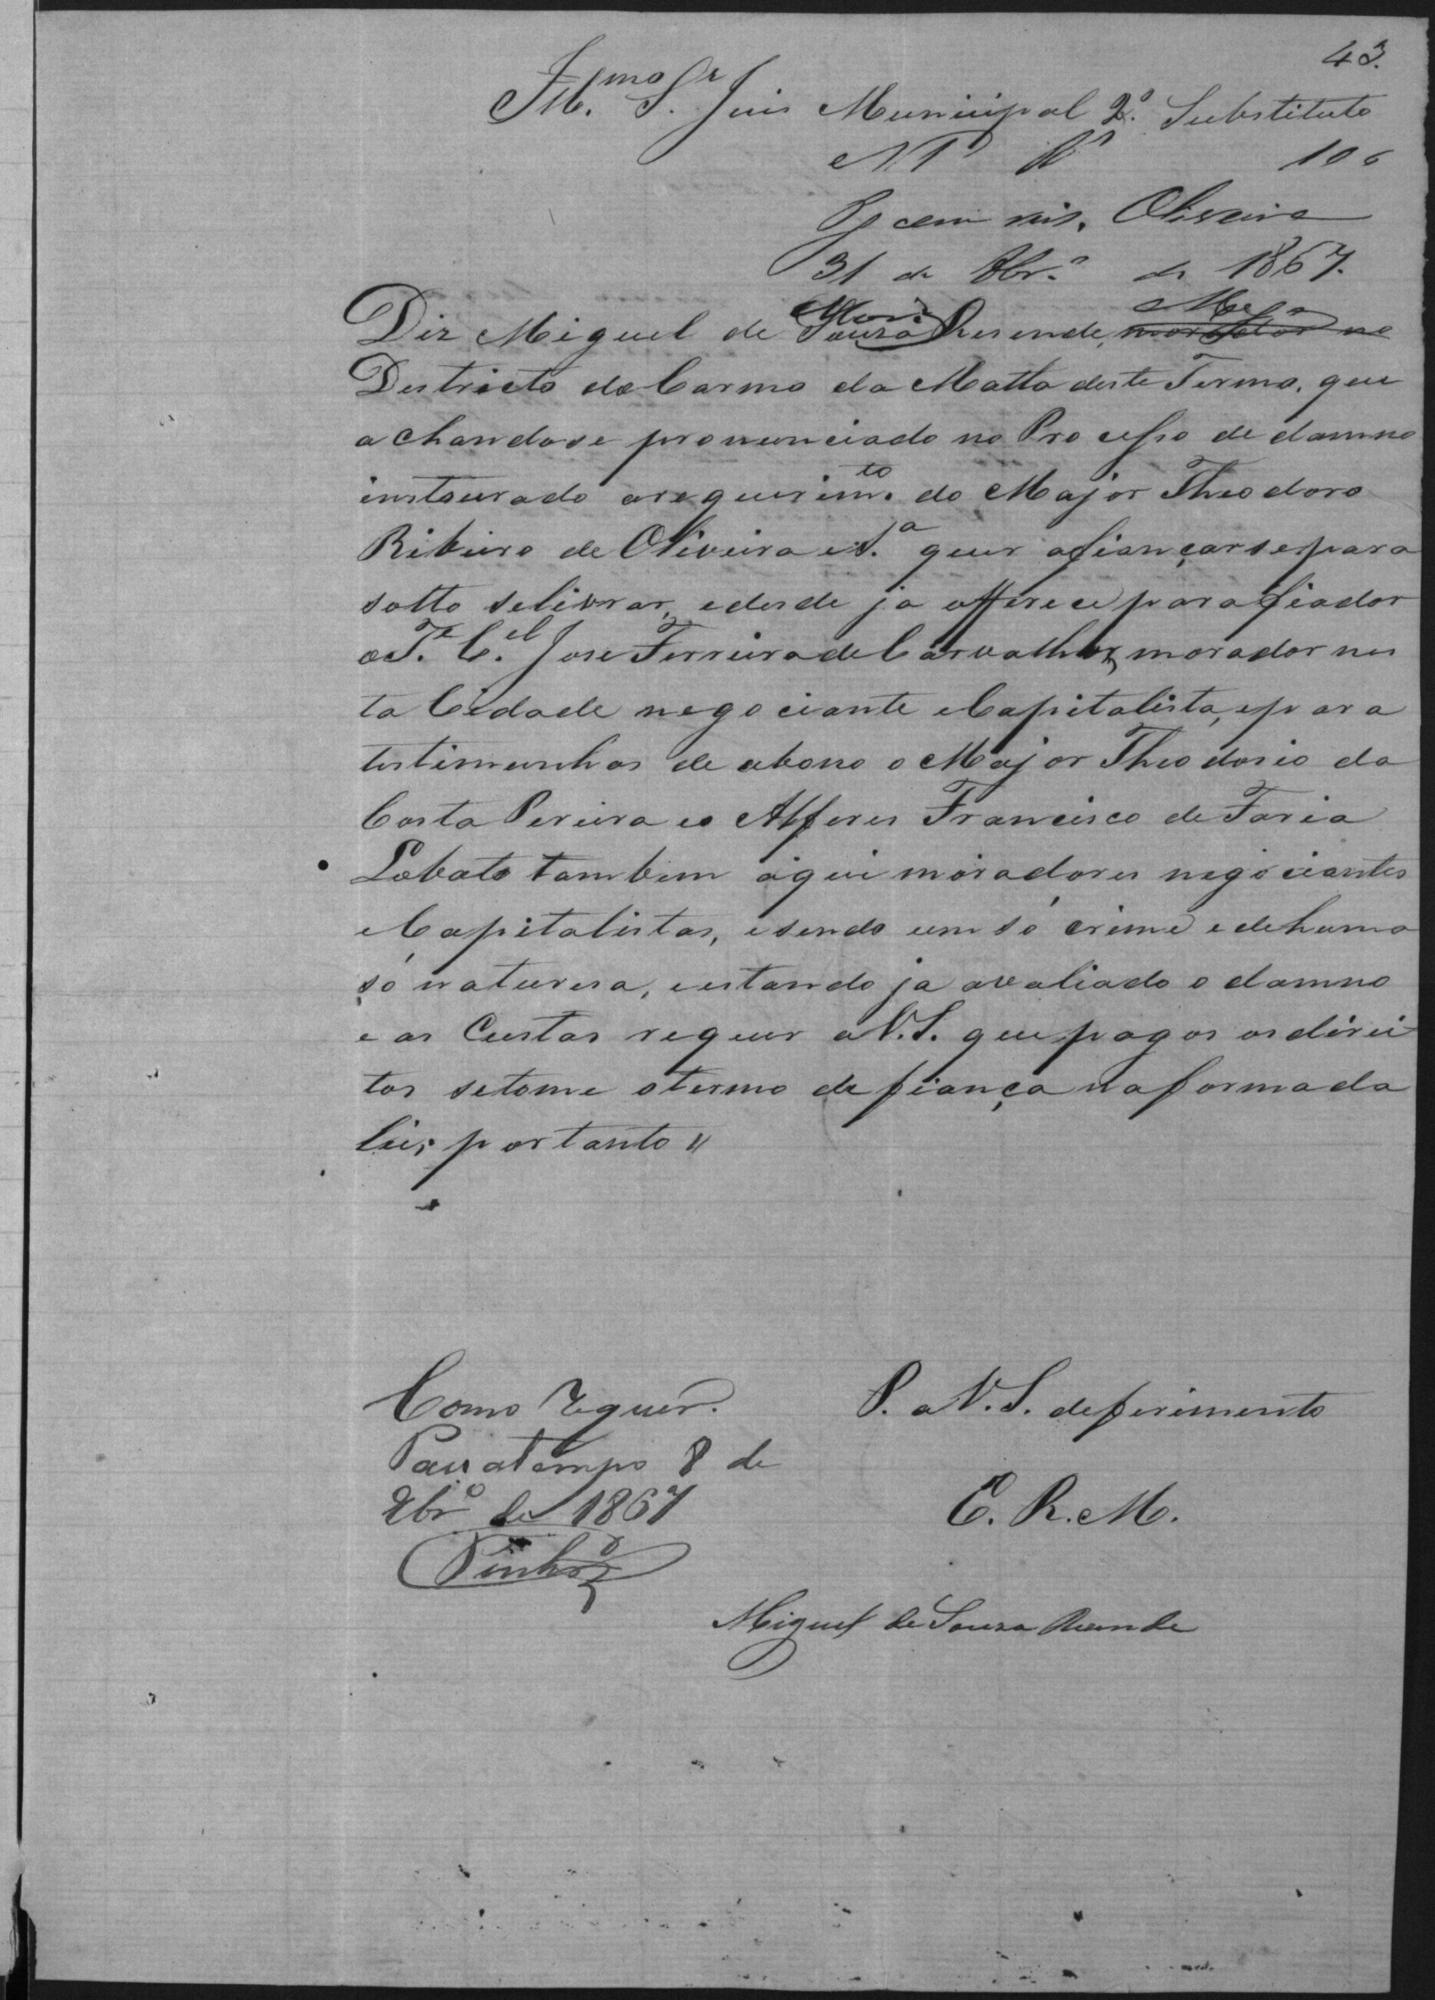 43.
Illmo Sr Juis Municipal 2º Substituto
Nº 1 Rs 100
Pg cem reis. Oliveira
31 de 8br.º de 1867.
Diz Miguel de Souza Resende, morador no
Destricto do Carmo da Matta deste Termo, que
achandose pronunciado no Processo de damno
instaurado arequerimto do Major Theodoro
Ribeiro de Oliveira e S.a quer afiançarse para
solto selivrar, edesde ja offerece para fiador
o Te. Cel. Jose Ferreira de Carvalho, morador nes
ta Cidade negociante eCapitalista, epara
testimunhas de abono o Major Theodosio da
Costa Pereira eo Alferes Francisco de Faria
Lobato tambem aqui moradores negociantes
eCapitalistas, esendo um só crime e dehuma
só naturesa, eestando ja avaliado o damno
e as Custas requer aV.S. que pagos osdirei
tos setome otermo defiança naformada
lei; portanto //
P. a V. S. deferimento
E. R. M.
Como requer.
Passatempo 8 de
9brº de 1867
Pinhº
Miguel de Souza Resende